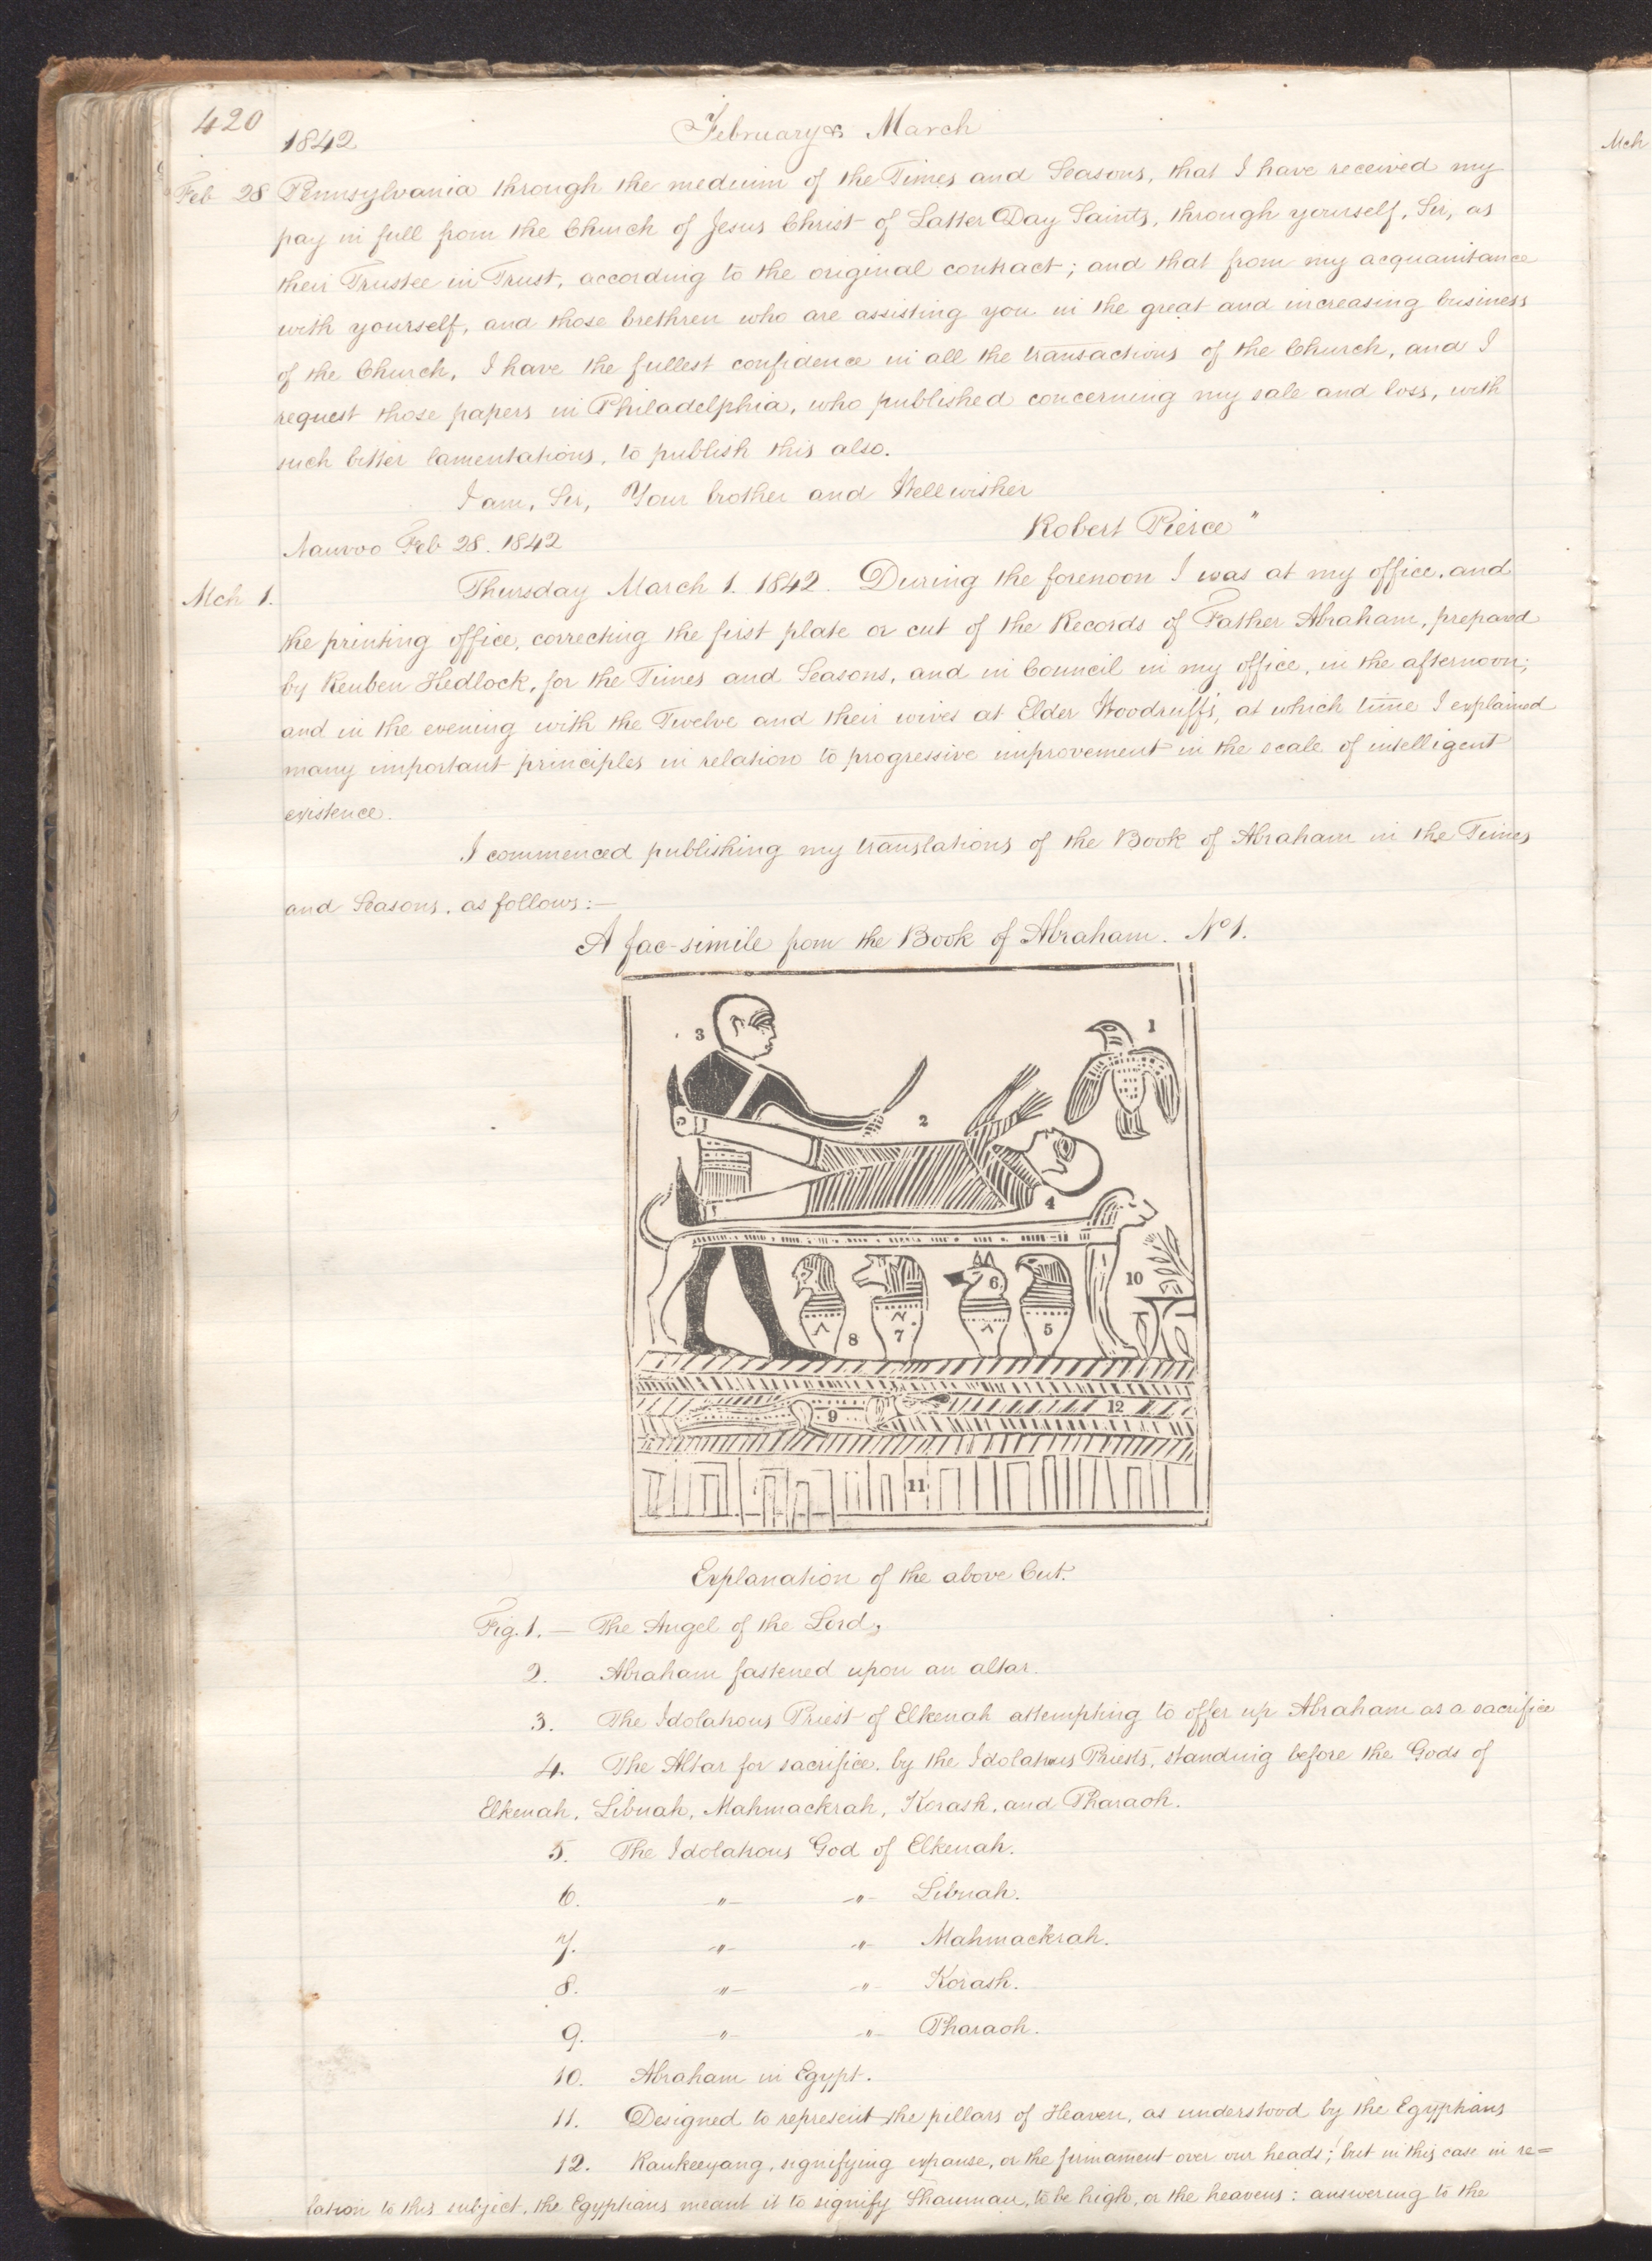 420
1842
February & March
Mch
Feb 28 Pennsylvania through the medium of the Times and Seasons, that I have received my
pay in full from the Church of Jesus Christ of Latter Day Saints, through yourself, Sir, as
their Trustee in Trust, according to the original contract; and that from my acquaintance
with yourself, and those brethren who are assisting you in the great and increasing business
of the Church, I have the fullest confidence in all the transactions of the Church, and I
request those papers in Philadelphia, who published concerning my sale and loss, with
such bitter lamentations, to publish this also.
I am, Sir, Your brother and Wellwisher
Robert Pierce"
Nauvoo Feb 28. 1842
Mch 1. Thursday March 1. 1842. During the forenoon I was at my office, and
the printing office, correcting the first plate or cut of the Records of Father Abraham, prepared
by Reuben Hedlock, for the Times and Seasons, and in Council in my office, in the afternoon;
and in the evening with the Twelve and their wives at Elder Woodruff's, at which time I explained
many important principles in relation to progressive improvement in the scale of intelligent
existence.
I commenced publishing my translations of the Book of Abraham in the Times
and Seasons, as follows:—
A fac-simile from the Book of Abraham. No 1.
3
1
2
4
10
6
8
7
5
9
12
11
Explanation of the above Cut.
Fig. 1. — The Angel of the Lord,
2. Abraham fastened upon an altar.
3. The Idolatrous Priest of Elkenah attempting to offer up Abraham as a sacrifice
4. The Altar for sacrifice, by the Idolatrous Priests, standing before the Gods of
Elkenah, Libnah, Mahmackrah, Korash, and Pharaoh.
5. The Idolatrous God of Elkenah.
6. -"- -"- Libnah.
7. -"- -"- Mahmackrah.
8. -"- -"- Korash.
9. -"- -"- Pharaoh.
10. Abraham in Egypt.
11. Designed to represent the pillars of Heaven, as understood by the Egyptians
12. Raukeeyang, signifying expanse, or the firmament over our heads; but in this case in re=
lation to this subject, the Egyptians meant it to signify Shaumau, to be high, or the heavens: answering to the